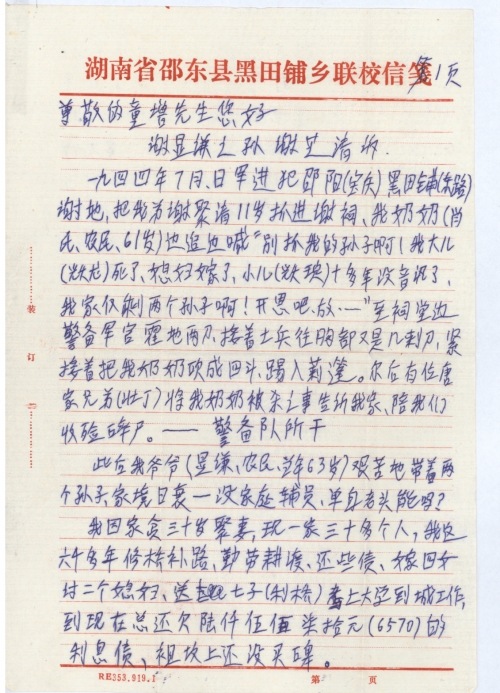 湖南省邵东县黑田铺乡联校信笺
第1页
尊敬的童增先生您好
谢显谦之孙谢芝清诉.
一九四四年7月、日军进犯邵阳(宝庆)黑田铺(东路)
谢地,把我弟谢聚清11岁抓进谢祠、我奶奶(肖
氏、农民、61岁)也追边喊"别抓我的孙子啊!我大儿
死了、媳妇嫁了、小儿十多年没音讯了,
我家仅剩两个孙子啊!开恩吧、放……"至祠堂边
警备军官霍地两刀、接着士兵往胸部又是几刺刀,紧
接着把我奶奶砍成四斗、踢入荊篷。尔后有位唐
家兄弟(壮丁)将我奶奶被杀之事告诉我家、陪我们
收殓碎尸。—— 警备队所干
此后我爷爷(显谦、农民、当年63岁)艰苦地带着两
个孙子、家境日衰一没家庭辅员、单身老头能吗?
我因家贫三十岁娶妻,现一家三十多个人,我这
六十多年修桥补路,勤劳耕读、还些债、嫁四女
讨二个媳妇、送七子(利桥)上大学到城工作,
到现在总还欠陆仟伍佰柒拾元(6570)的
利息债,祖坟上还没买碑。
装
订
RE353.919.1
第 页